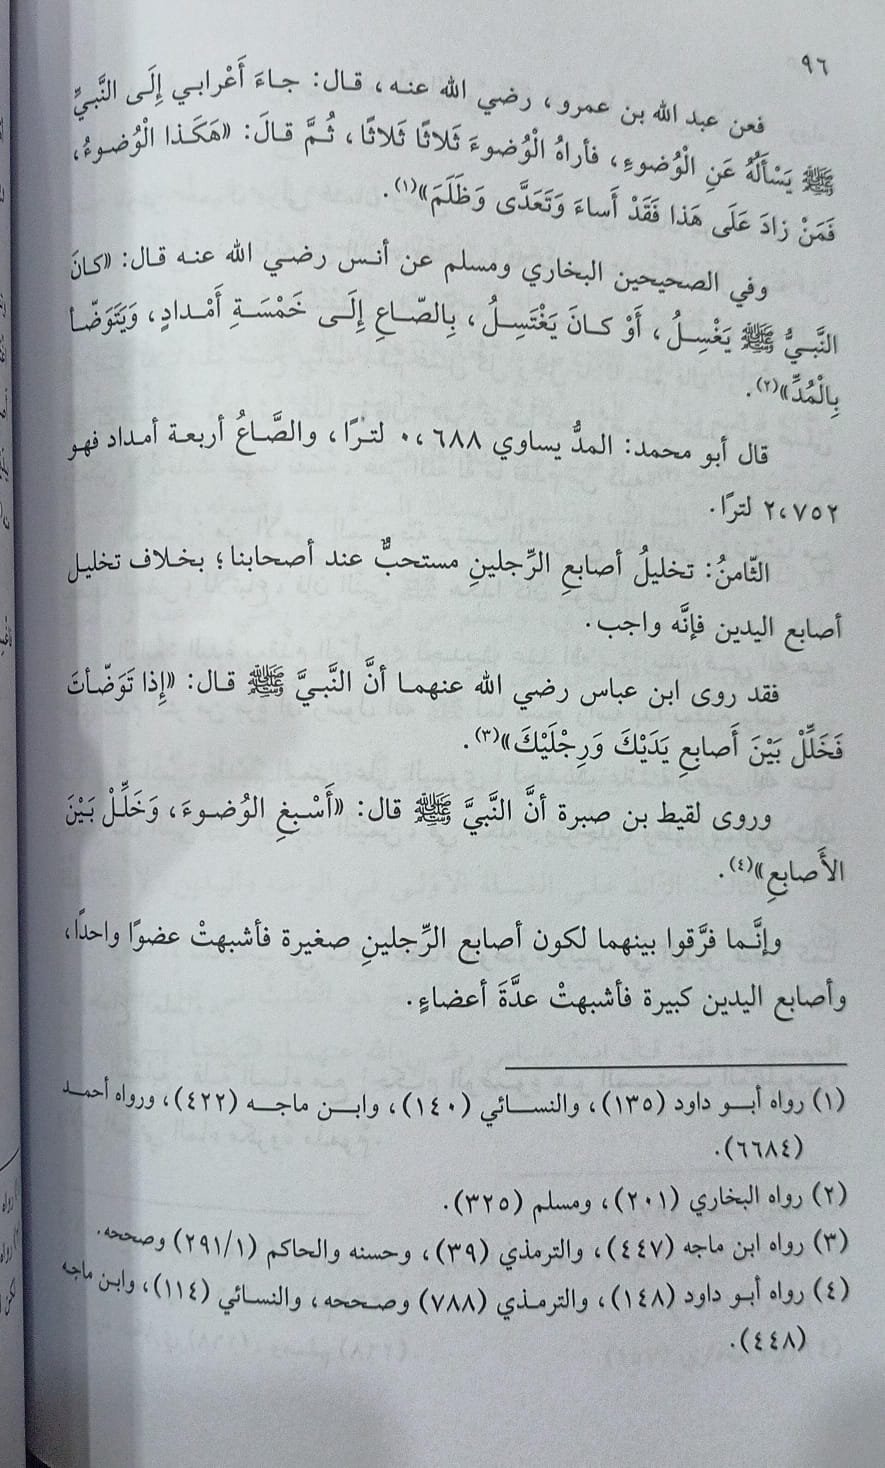 ٩٦
فعن عبد الله بن عمرو، رضي الله عنه، قال: جاءَ أَعْرابي إِلَى النَّبيِّ
ﷺ يَسْأَلُهُ عَنِ الْوُضوءِ، فأراهُ الْوُضوءَ ثَلاثًا ثَلاثًا، ثُمَّ قالَ: «هَكَذا الْوُضوءُ،
فَمَنْ زادَ عَلَى هَذا فَقَدْ أَساءَ وَتَعَدَّى وَظَلَمَ»(١).
وفي الصحيحين البخاري ومسلم عن أنس رضي الله عنه قال: «كانَ
النَّبيُّ ﷺ يَغْسِلُ، أَوْ كانَ يَغْتَسِلُ، بِالصّاعِ إِلَى خَمْسَةِ أَمْدادٍ، وَيَتَوَضّأ
بِالْمُدِّ»(٢).
قال أبو محمد: المدُّ يساوي ٠،٦٨٨ لترًا، والصَّاعُ أربعة أمداد فهو
٢،٧٥٢ لترًا.
الثّامنُ: تخليلُ أصابعِ الرِّجلينِ مستحبٌّ عند أصحابنا؛ بخلاف تخليل
أصابع اليدين فإنَّه واجب.
فقد روى ابن عباس رضي الله عنهما أنَّ النَّبيَّ ﷺ قال: «إِذا تَوَضّأتَ
فَخَلِّلْ بَيْنَ أَصابعِ يَدَيْكَ وَرِجْلَيْكَ»(٣).
وروى لقيط بن صبرة أنَّ النَّبيَّ ﷺ قال: «أَسْبغِ الوُضوءَ، وَخَلِّلْ بَيْنَ
الأَصابعِ»(٤).
وإنَّما فرَّقوا بينهما لكون أصابع الرِّجلينِ صغيرة فأشبهتْ عضوًا واحدًا،
وأصابع اليدين كبيرة فأشبهتْ عدَّةَ أعضاءٍ.
(١) رواه أبو داود (١٣٥)، والنسائي (١٤٠)، وابن ماجه (٤٢٢)، ورواه أحمد
(٦٦٨٤).
(٢) رواه البخاري (٢٠١)، ومسلم (٣٢٥).
(٣) رواه ابن ماجه (٤٤٧)، والترمذي (٣٩)، وحسنه والحاكم (٢٩١/١) وصححه.
(٤) رواه أبو داود (١٤٨)، والترمذي (٧٨٨) وصححه، والنسائي (١١٤)، وابن ماجه
(٤٤٨).